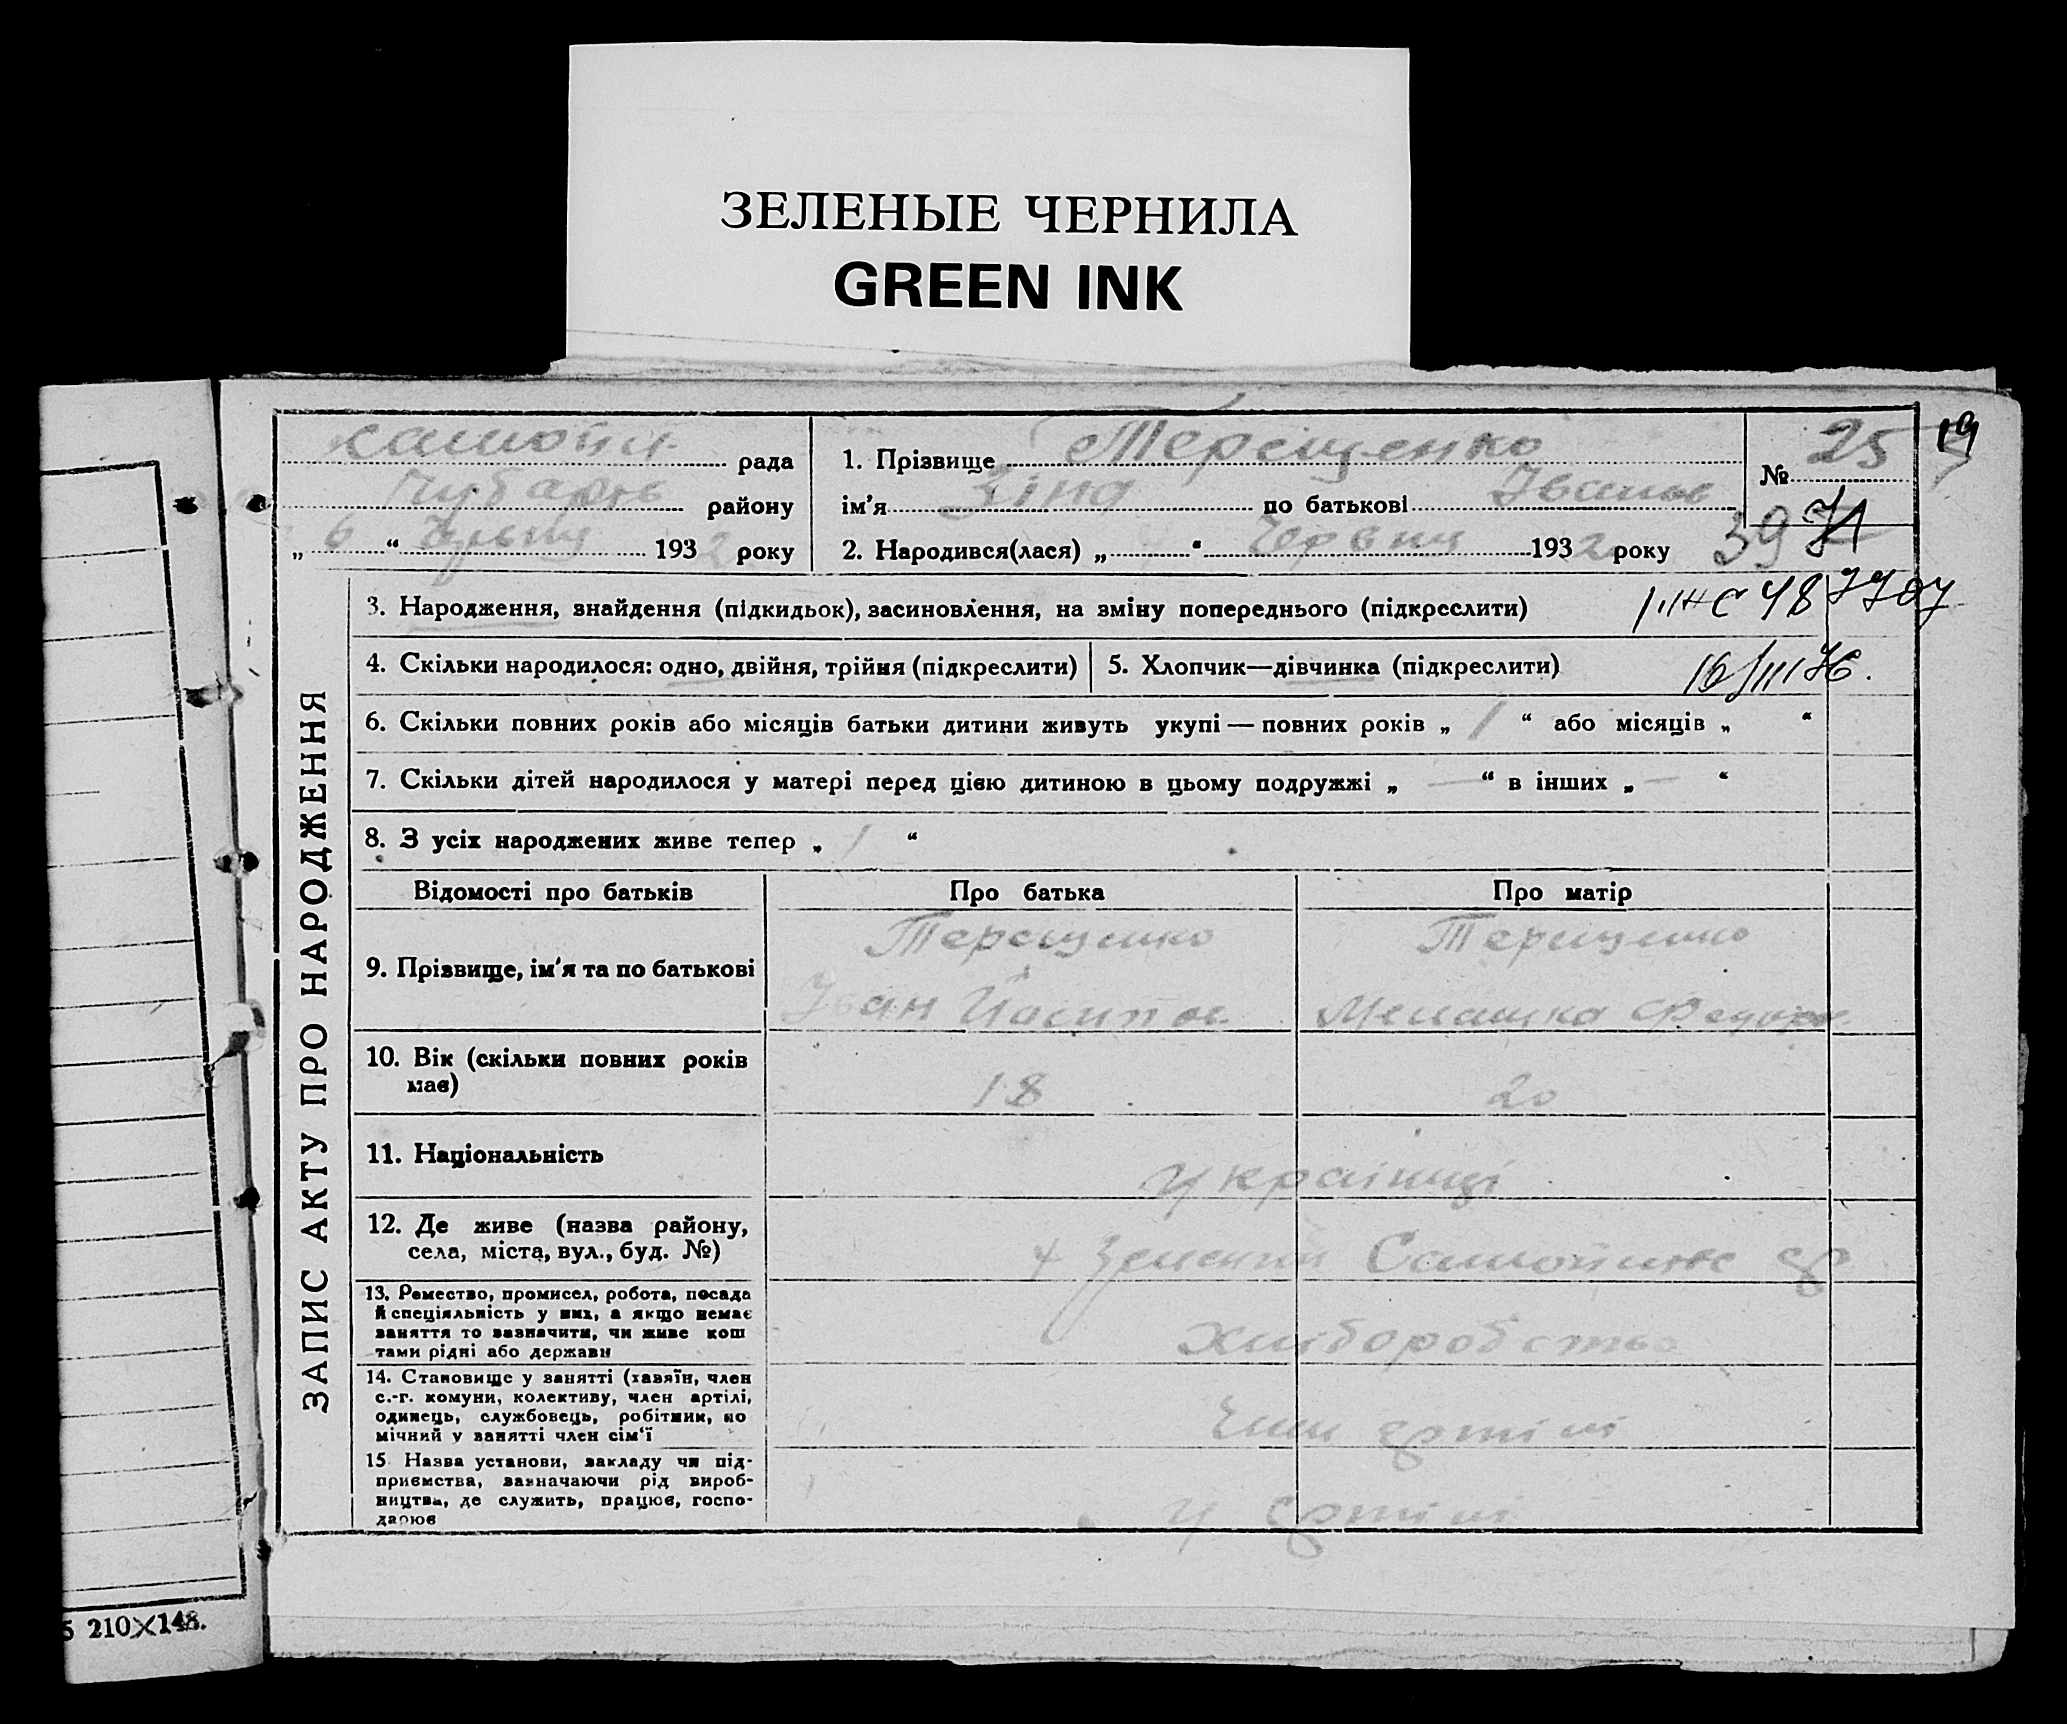 ЗЕЛЕНЫЕ ЧЕРНИЛА
GREEN INK
рада
району
„ 6 “ Червня 1932 року
1. Прізвище Терещенко
ім'я Зіна по батькові Іванов
2. Народився(лася) „ “ Червня 1932 року
№ 25
19
39
3. Народження, знайдення (підкидьок), засиновлення, на зміну попереднього (підкреслити)
4. Скільки народилося: одно, двійня, трійня (підкреслити)
5. Хлопчик—дівчинка (підкреслити)
16/III 76.
6. Скільки повних років або місяців батьки дитини живуть укупі — повних років „ 1 “ або місяців „ “
7. Скільки дітей народилося у матері перед цією дитиною в цьому подружжі „ — “ в інших „ — “
8. З усіх народжених живе тепер „ 1 “
ЗАПИС АКТУ ПРО НАРОДЖЕННЯ
Відомості про батьків Про батька Про матір
9. Прізвище, ім'я та по батькові
Терещенко
Іван Йосипов
Терещенко
Мелашка Федоров
10. Вік (скільки повних років має)
18
20
11. Національність
Українці
12. Де живе (назва району,
села, міста, вул., буд. №)
13. Ремество, промисел, робота, посада
й спеціяльність у них, а якщо немає
заняття то зазначити, чи живе кош
тами рідні або держави
Хліборобство
14. Становище у занятті (хазяїн, член
с.-г. комуни, колективу, член артілі,
одинець, службовець, робітник, по
мічний у занятті член сім'ї
Член артілі
15 Назва установи, закладу чи під-
приємства, зазначаючи рід вироб-
ництва, де служить, працює, госпо-
дарює
У артілі
5 210×148.